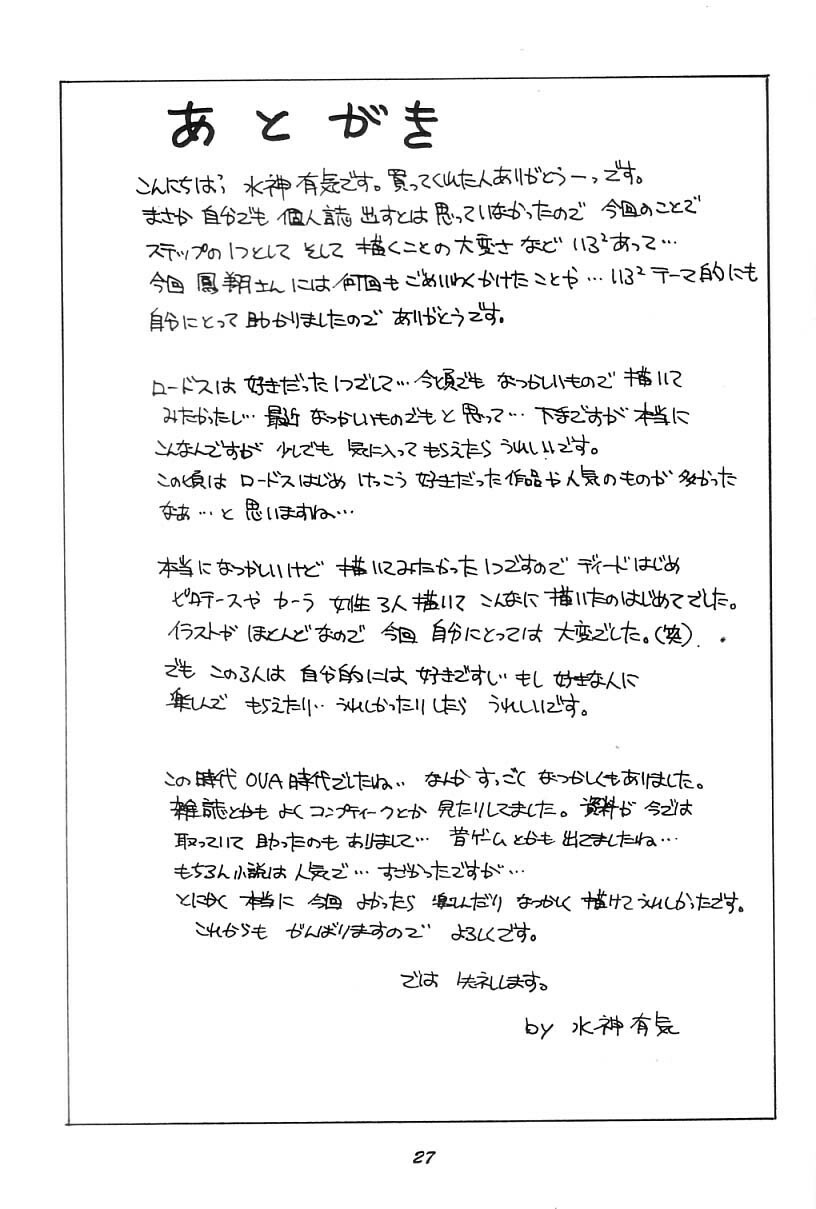 あとがき
こんにちはっ 水神有気です。買ってくれた人ありがとうーっです。
まさか 自分でも 個人誌 出すとは 思っていなかったので 今回のことで
ステップの1つとして そして 描くことの 大変さ など いろ²あって…
今回 鳳翔さんには 何回も ごめいわくかけたことや… いろ² テーマ的にも
自分にとって 助かりましたので ありがとうです。
ロードスは 好きだった1つでして… 今頃でも なつかしいもので 描いて
みたかったし… 最近 なつかしいものでもと 思って… 下手ですが 本当に
こんなんですが 少しでも 気に入って もらえたら うれしいです。
この頃は ロードスはじめ けっこう 好きだった作品や人気のものが 多かった
なぁ…と 思いますね…
本当になつかしいけど 描いてみたかった1つですので ディードはじめ
ピロテースや カーラ 女性3人 描いて こんなに 描いたのはじめてでした。
イラストが ほとんどなので 今回 自分にとっては 大変でした。(笑)
でも この3人は 自分的には 好きですし もし 好きな人に
楽しんで もらえたり‥ うれしかったりしたら うれしいです。
この時代 OVA時代でしたね‥ なんか すっごく なつかしくもありました。
雑誌とかも よく コンプティークとか 見たりしてました。資料が 今では
取っていて 助ったのも ありまして… 昔ゲームとかも 出てましたね…
もちろん小説は 人気で… すごかったですが…
とにかく 本当に 今回 よかったら 楽しんだり なつかしく 描けて うれしかったです。
これからも がんばりますので よろしくです。
では 失礼します。
by 水神有気
27